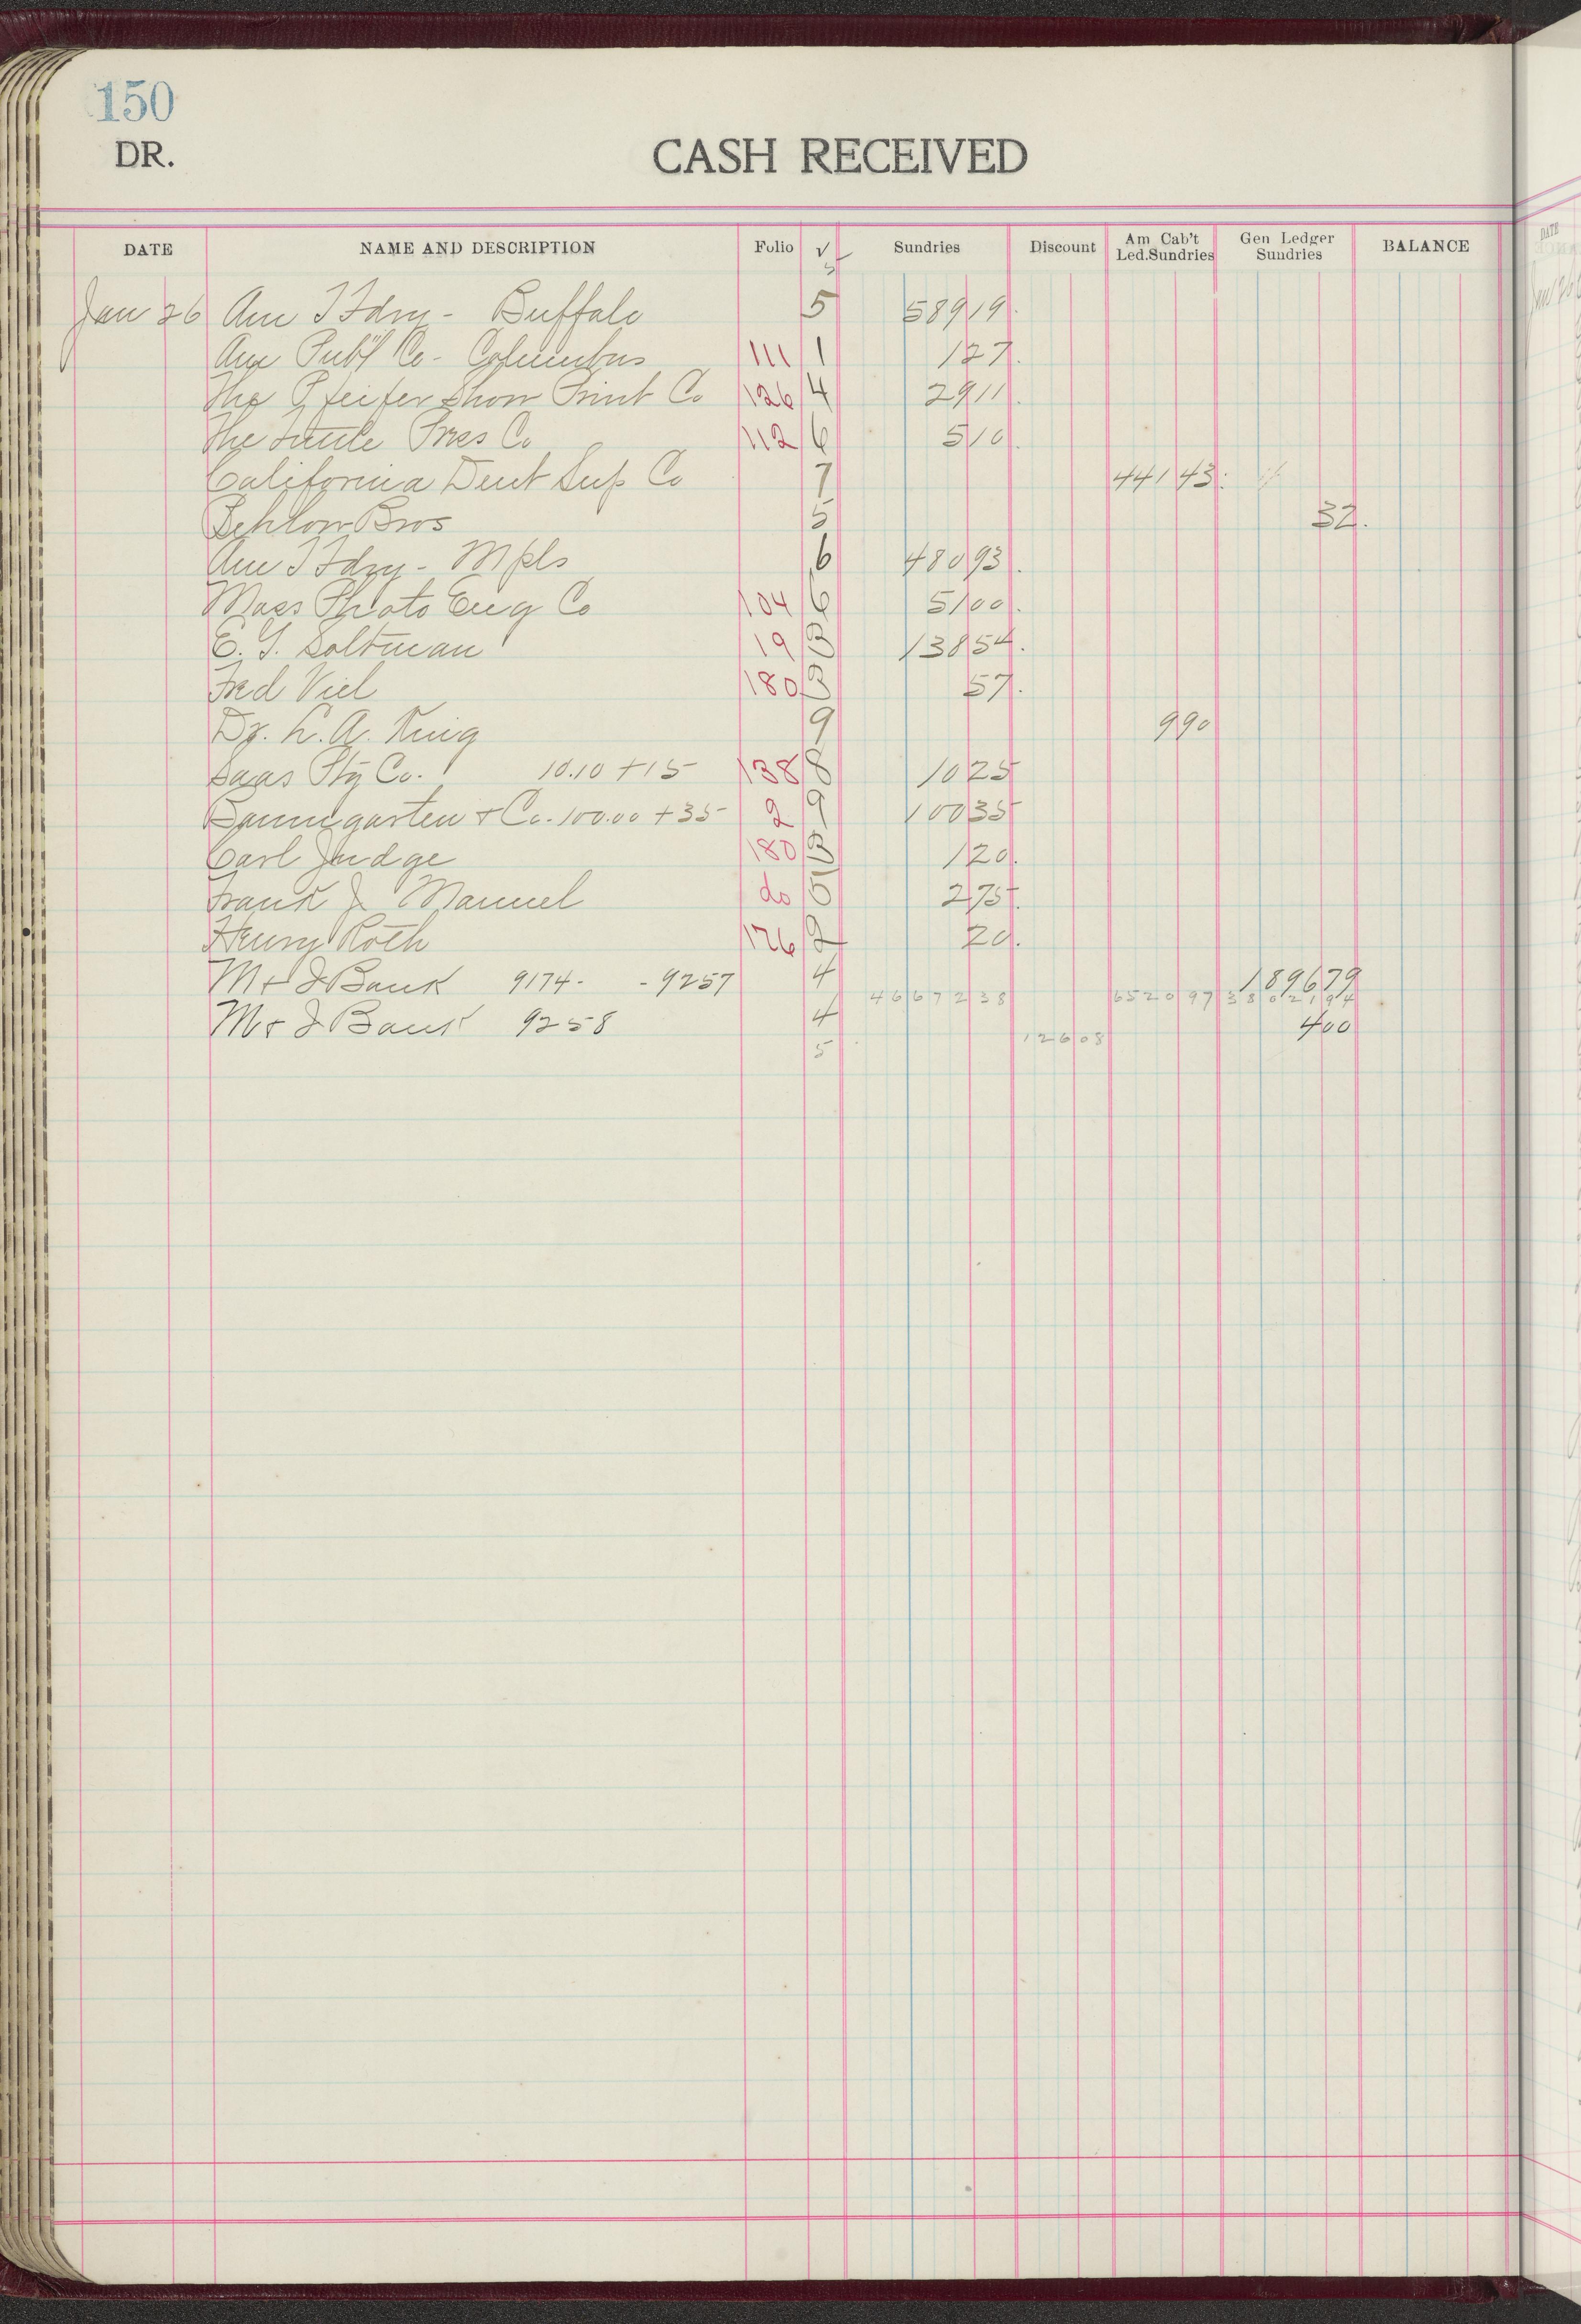 150
DR.
CASH RECEIVED
DATE NAME AND DESCRIPTION Folio √ Sundries Discount Am Cab't Led.Sundries Gen Ledger Sundries BALANCE
Jan 26 Am T Fdry - Buffalo 5 589 19
Am Publ Co - Columbus 111 1 1 27
The Pfeifer Show Print Co 126 4 29 11
The Tuttle Press Co 112 6 5 10
California Dent Sup Co 7 441 43
Bros 5 32
Am T Fdry - Mpls 6 480 93
Mass Photo Eng Co 104 6 51 00
E. G. Soltman 19 B 138 54
Fred Viel 180 B 57
Dr. L. A. King 9 9 90
Saas Ptg Co. 10.10 + 15 138 8 10 25
Baumgarten & Co. 100.00 + 35 2 9 100 35
Carl Judge 180 B 1 20
Frank J Manuel do 5 2 75
Henry Roth 176 2 20
M & I Bank 9174 - - 9257 4 1896 79
46672 38 6520 97 38021 94
M & I Bank 9258 4 4 00
5 126 08